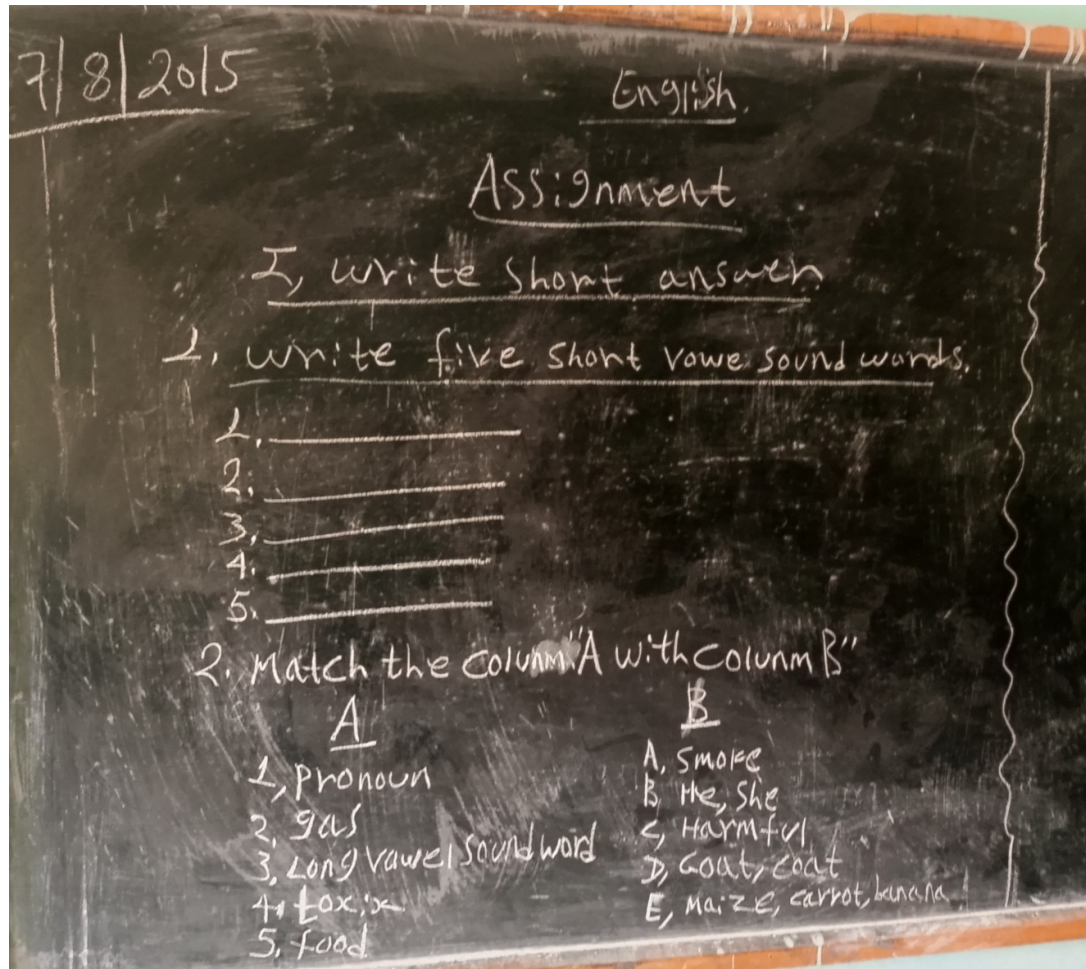 7/8/2015
English.
Assignment
I, write short answer.
1. write five short vowe sound words.
1.
2.
3.
4.
5.
2. Match the colunm "A with colunm B"
A
B
1, pronoun
2, gas
3, Long vawel sound word
4, toxix
5, food
A, smoke
B, He, she
C, Harmful
D, Goat, coat
E, Maize, carrot, banana